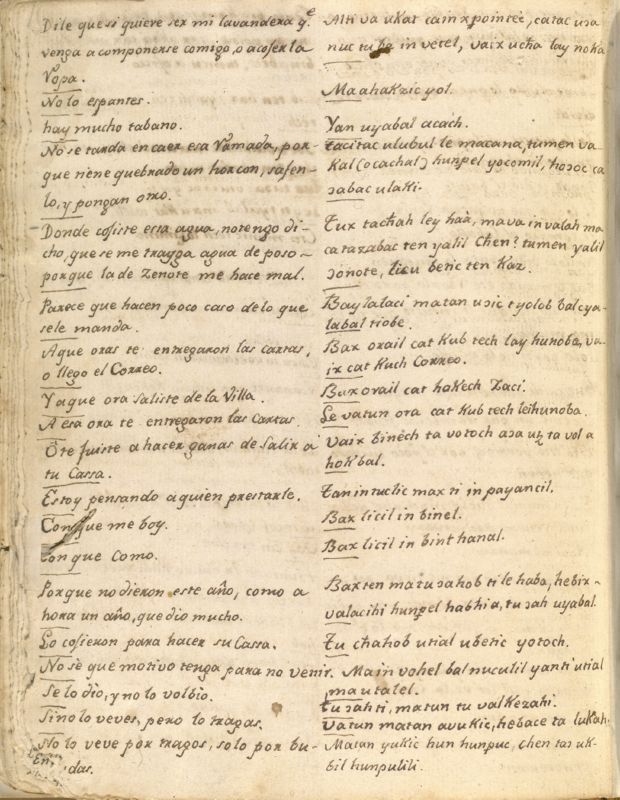 Dile que si quiere ser mi lavandera qe
venga a componerse comigo, o a coser la
Ropa.
No lo espantes.
hay mucho tabano.
No se tarda en caer esa Ramada, por-
que tiene quebrado un horcon, safen-
lo, y pongan otro.
Donde cosiste esta agua, no tengo di-
cho, que se me trayga agua de poso
porque la de Zenote me hace mal.
Parece que hacen poco caso de lo que
se le manda.
A que oras te entregaron las cartas,
o llego el Correo.
Ya que ora saliste de la Villa.
A esa ora te entregaron las Cartas.
O te fuiste a hacer ganas de salir a
tu Cassa.
Estoy pensando a quien prestarle.
Con que me boy.
Con que Como.
Porque no dieron este año, como a
hora un año, que dio mucho.
Lo cosieron para hacer su Cassa.
No sè que motivo tenga para no venir.
Se lo dio, y no lo volbio.
Si no lo veves, pero lo tragas.
No lo veve por tragos, solo por bu-
das.
Alti va u kat
ca tac
nuc tu ba in vetel, vaix u cħa lay nok
Ma a hakzic yol.
Yan u yabal acach.
tacitac ulubul le macana, tumen va
kal (o cachal) hunpel yocomil,
ulaki.
Tux ta cħah ley haà, ma va in valah ma
ten yalil Chen? tumen yalil
ɔonote, betic ten Kaz.
Bay la laci matan u ɔic t yolob balcya-
labal tiobe.
Bax orail cat kub tech lay hunoba, va-
ix cat kuch Correo.
Bax orail cat hokech Zaci.
Le vatun ora cat kub tech lei hunoba.
Vaix binech ta votoch ta vol a
hokbal.
Tan in tuclic max ti in payancil.
Bax licil in binel.
Bax licil in bin t hanal.
Baxten ma tu ɔahob ti le haba, hebix-
valacihi hunpel hab hi a, tu ɔah u yabal.
Tu cħahob utial u betic yotoch.
Ma in vohel bal nuculil yanti utial
ma u talel.
tu ɔah ti, matun tu valkezahi.
Vatun matan a vukic, hebace ta lukah.
Matan yukic hun hunpuc, chen uk-
bil hunpulili.